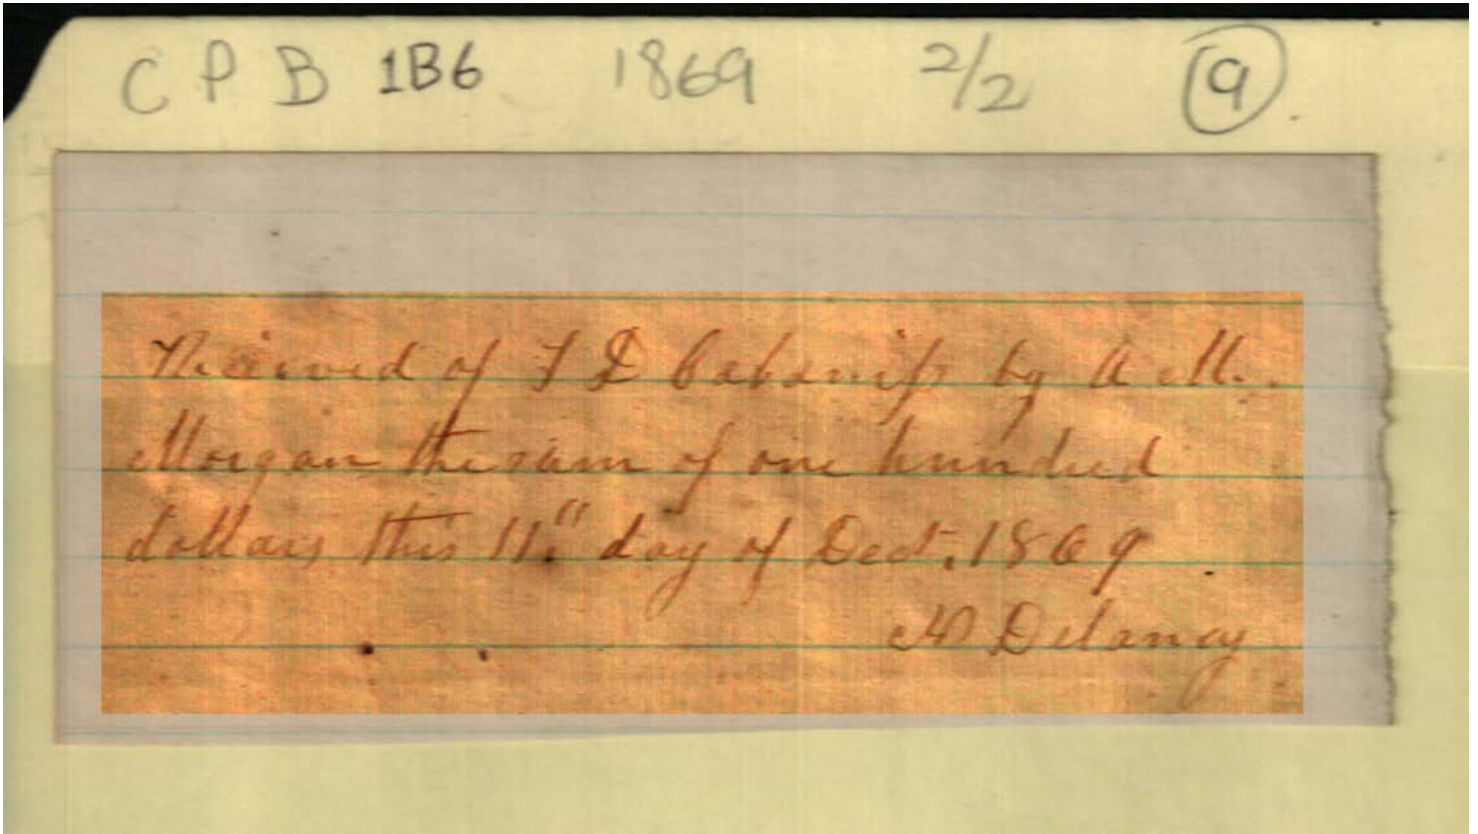 C P B 1B6 1869 2/2 9
Received of F D Cabaniss by A M.
Morgan the sum of one hundred
dollars this 11" day of Dect. 1869
M Delaney